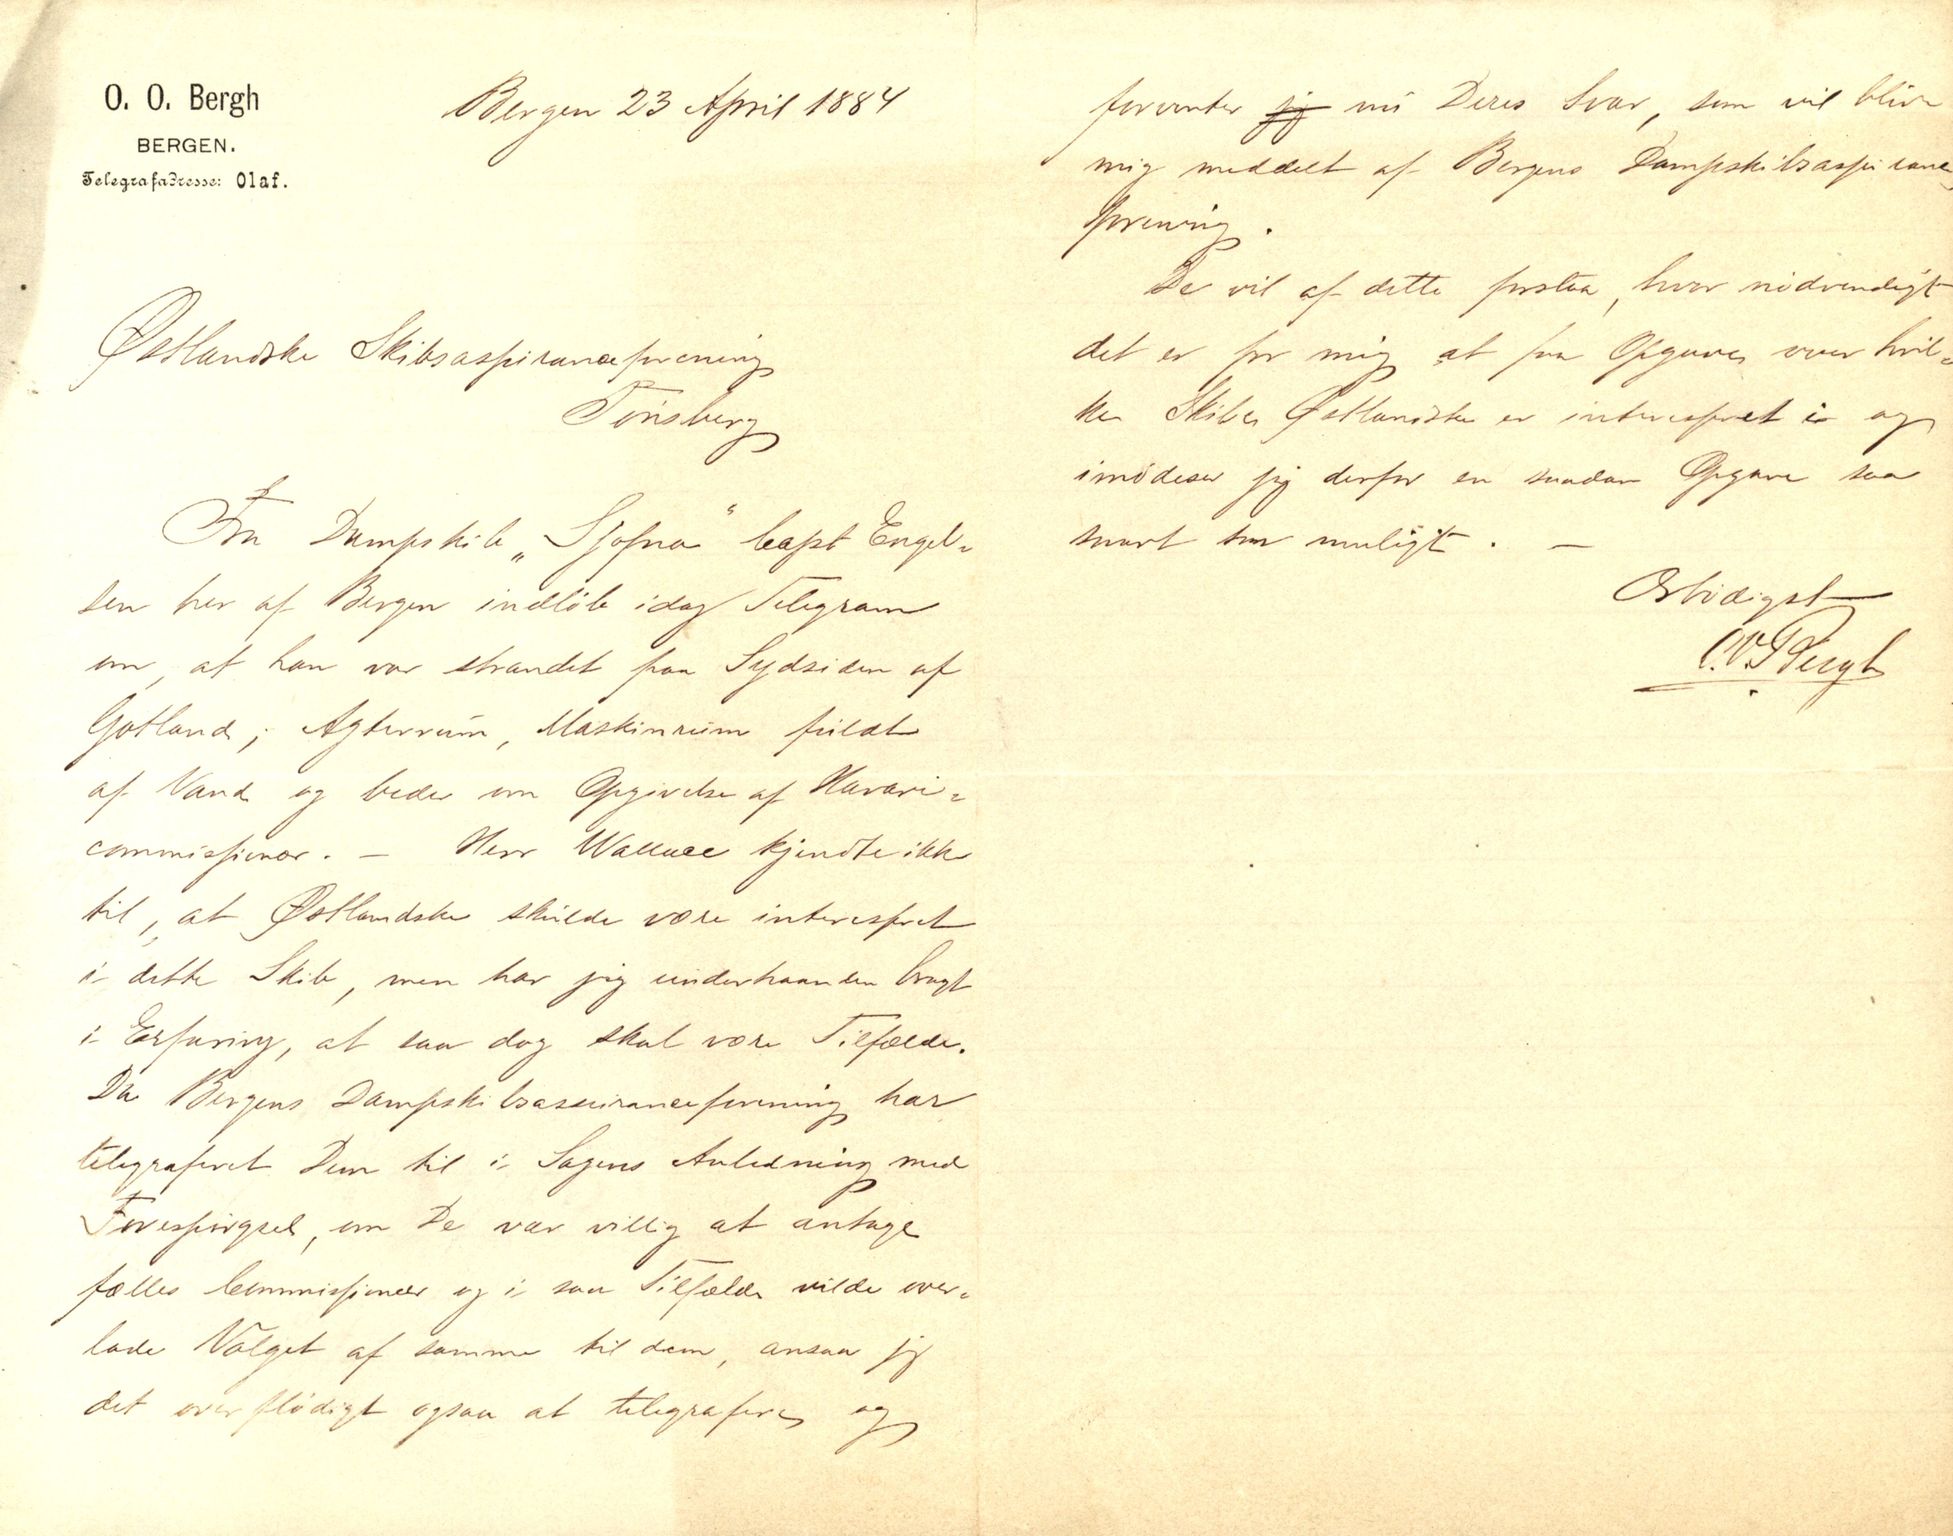 O. O. Bergh
BERGEN.
Telegrafadresse: Olaf.
Bergen 23 April 1884
Østlandske Skibsassuranceforening
Tønsberg
Fra Dampskib „Sjofna“ Capt Engel-
sen her af Bergen indløb idag Telegram
om, at han var strandet paa Sydsiden af
Gotland; Agterrum, Maskinrum fuldt
af Vand og beder om Opgivelse af Havari-
commissionær. — Herr Wallace kjendte ikke
til, at Østlandske skulde være interesseret
i dette Skib, men har jeg underhaanden bragt
i Erfaring, at saa dog skal være Tilfælde.
Da Bergens Dampskibsassuranceforening har
telegraferet Dem til i Sagens Anledning med
Forespørgsel, om De var villig at antage
fælles Commissionær og i saa Tilfælde vilde over-
lade Valget af samme til dem, ansaa jeg
det overflødigt ogsaa at telegrafere og
forventer jeg nu Deres Svar, som vil blive
mig meddelt af Bergens Dampskibsassurance
forening.
De vil af dette forstaa, hvor nødvendigt
det er for mig at faa Opgave over hvil-
ke Skibe Østlandske er interesseret i og
imødeser jeg derfor en saadan Opgave saa
snart som muligt. —
Ærbødigst
O. O. Bergh